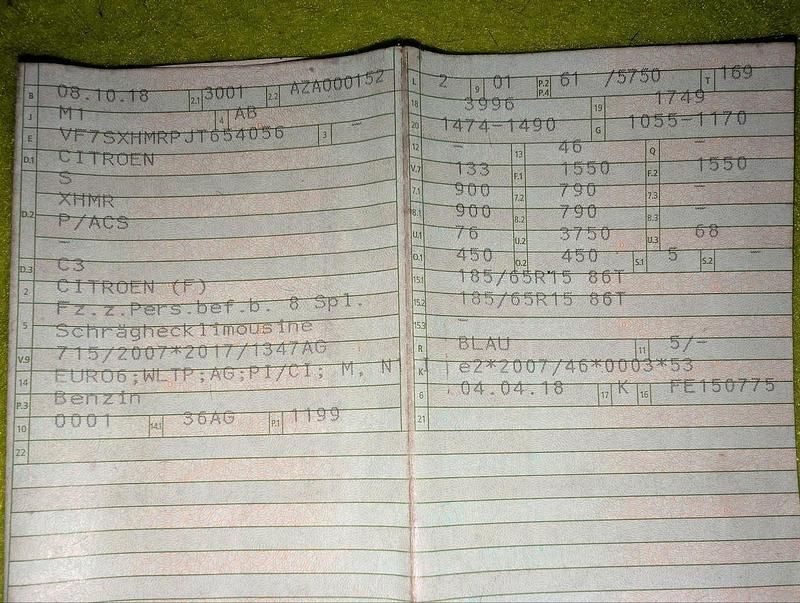 B 08.10.18 2.1 3001 2.2 AZA000152
J M1 4 AB
E VF7SXHMRPJT654056 3 –
D.1 CITROEN
D.2 S
XHMR
P/ACS
–
D.3 C3
2 CITROEN (F)
5 Fz.z.Pers.bef.b. 8 Spl.
Schräghecklimousine
V.9 715/2007*2017/1347AG
14 EURO6;WLTP;AG;PI/CI; M, N1 I
P.3 Benzin
10 0001 14.1 36AG P.1 1199
22
L 2 9 01 P.2 P.4 61 /5750 T 169
18 3996 19 1749
20 1474-1490 G 1055-1170
12 – 13 46 Q –
V.7 133 F.1 1550 F.2 1550
7.1 900 7.2 790 7.3 –
8.1 900 8.2 790 8.3 –
U.1 76 U.2 3750 U.3 68
O.1 450 O.2 450 S.1 5 S.2 –
15.1 185/65R15 86T
15.2 185/65R15 86T
15.3 –
R BLAU 11 5/–
K e2*2007/46*0003*53
6 04.04.18 17 K 16 FE150775
21